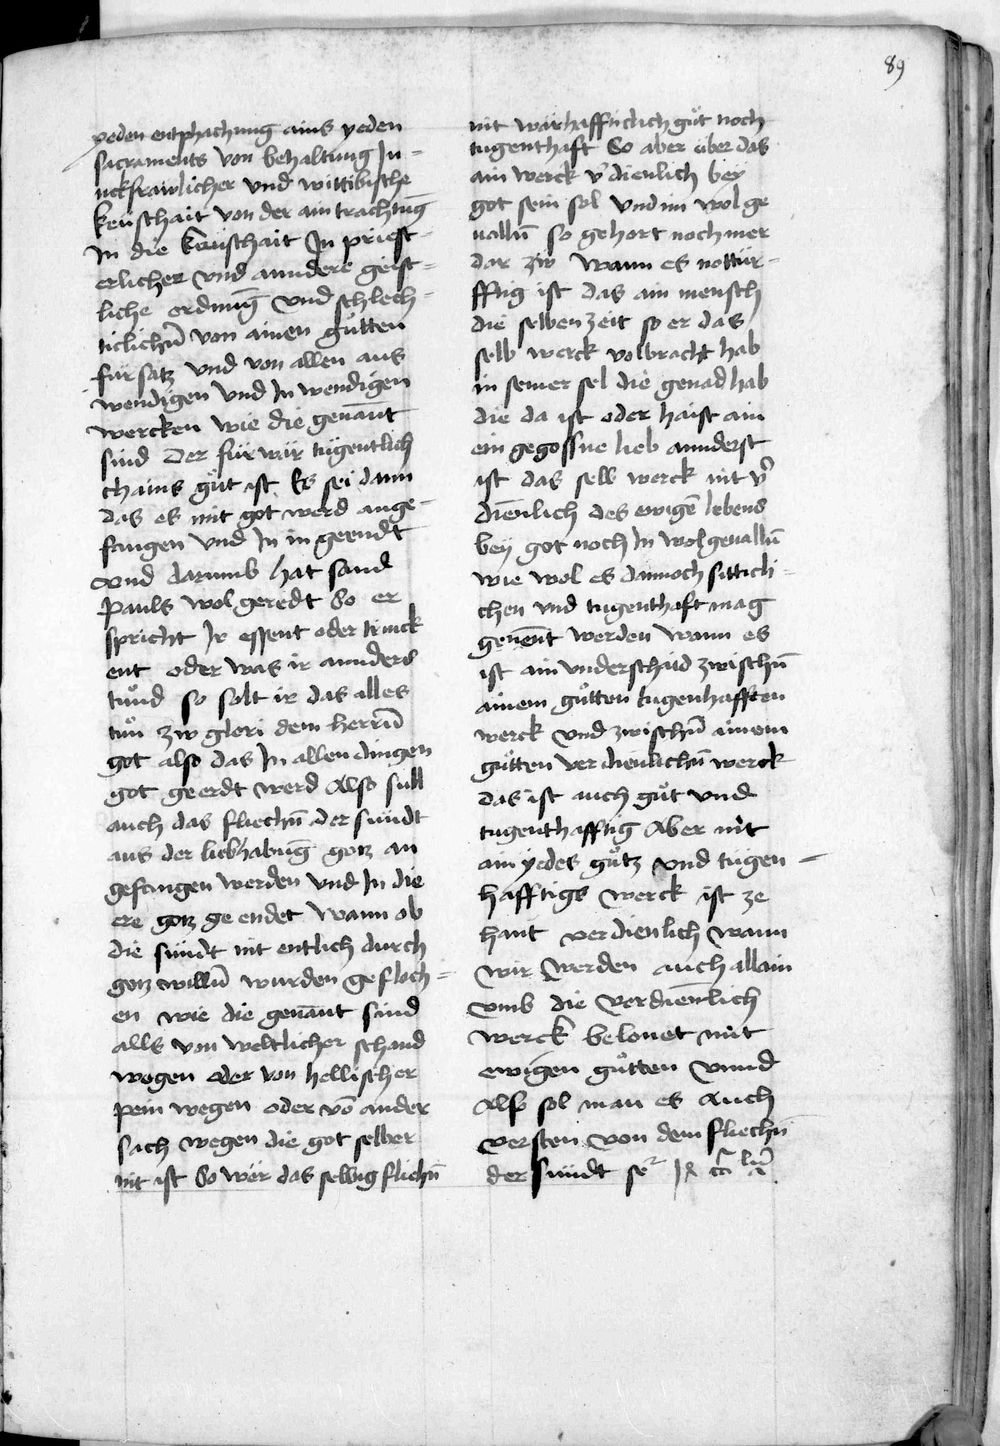 89
yeden entphachung ains yeden
sacraments von behaltung Ju=
nckfrawlicher vnd wittibische
keüschait von der ain trachtūg
In die keüschait In priest=
erlicher vnd annders geist=
liche ordnūg vnd schlech=
ticlichn̄ von ainen gůtten
fürsatz vnd von allen aus
wendigen vnd In wendigen
wercken wie die genānt
sind Der für wär tügentlich
chains gůt ist Es sei dann
das es mit got werd ange=
fangen vnd In in geendt
vnd darumb hat sand
Pauls wol geredt So er
spricht Ir essent oder trinck
ent oder was ir annders
tůnd so solt ir das alles
tůn zw glori dem herrn̄
got also das In allen dingen
got geerdt werd Also sull
auch das fliechn̄ der sündt
aus der liebhabūg gotz an
gefangen werden vnd In die
ere gotz ge endet Wann ob
die sündt nit entlich durch
gotz willn̄ wurden gefloch=
en wie die genānt sind
alls von weltlicher schand
wegen oder von hellischer
pein wegen oder vō ander
sach wegen die got selber
nit ist So wer das selbig fliechn̄
nit warhafftticlich gůt noch
tugenthaft So aber über das
ain werck v̄dienlich bey
got sein sol vnd im wol ge
ualln̄ so gehort noch mer
dar zw Wann es nottür=
fftig ist das ain mensch
die selben zeit so er das
selb werck volbracht hab
in seiner sel die genad hab
die da ist oder haist ain
ein gegossne lieb annderst
ist das selb werck nit v̄
diēnlich des ewigē lebens
bey got noch In wolgeualln̄
wie wol es dannoch sitticli=
chen vnd tugenthaft mag
genēnt werden Wann es
ist ain vnderschaid zwischn̄
ainem gůtten tugenhafften
werck vnd zwischn̄ ainem
gůtten verdienlichn̄ werck
das ist auch gůt vnd
tugenthafftig Aber nit
ain yedes gůtz vnd tügen=
hafftigs werck ist ze
hant verdienlich wann
wir werden auch allain
vmb die verdiēnlich
werck belonet mit
ewigen gůtten vnnd
Also sol man es Auch
versten von dem fliechn̄
der sündt